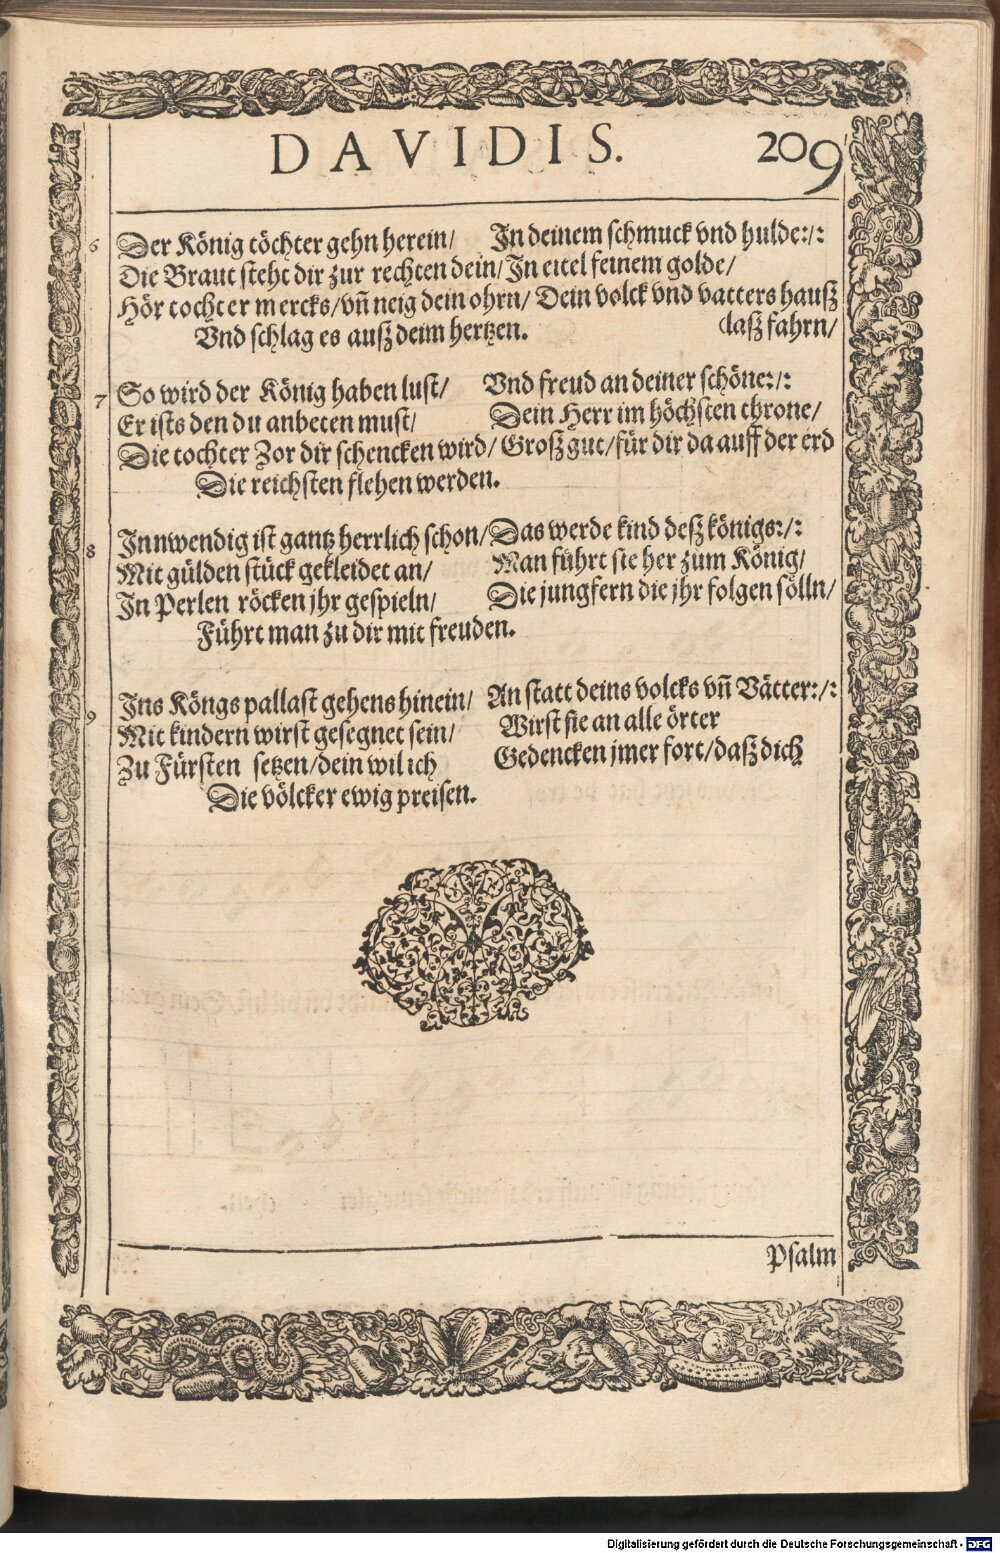 DAVIDIS. 209
6 Der König töchter gehn herein/ In deinem schmuck vnd hulde:/:
Die Braut steht dir zur rechten dein/ In eitel feinem golde/
Hör tochter mercks/ vñ neig dein ohrn/ Dein volck vnd vatters hauß
Vnd schlag es auß deim hertzen. laß fahrn/
7 So wird der König haben lust/ Vnd freud an deiner schöne:/:
Er ists den du anbeten must/ Dein Herr im höchsten throne/
Die tochter Zor dir schencken wird/ Groß gut/ für dir da auff der erd
Die reichsten flehen werden.
8 Innwendig ist gantz herrlich schon/ Das werde kind deß königs:/:
Mit gülden stück gekleidet an/ Man führt sie her zum König/
In Perlen röcken jhr gespieln/ Die jungfern die jhr folgen sölln/
Führt man zu dir mit freuden.
9 Ins Köngs pallast gehens hinein/ An statt deins volcks vñ Vätter:/:
Mit kindern wirst gesegnet sein/ Wirst sie an alle örter
Zu Fürsten setzen/ dein wil ich Gedencken jmer fort/ daß dich
Die völcker ewig preisen.
Psalm
Digitalisierung gefördert durch die Deutsche Forschungsgemeinschaft - DFG